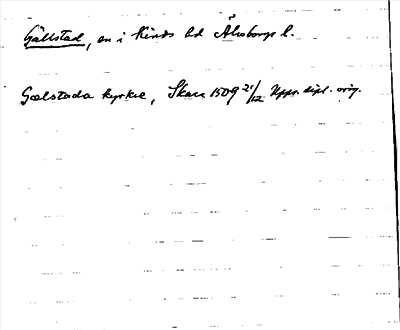 Gällstad, sn i Kinds hd Älvsborgs l.
Gælstada kyrkie, Skara 1509 21/12 Uppl. dipl. orig.